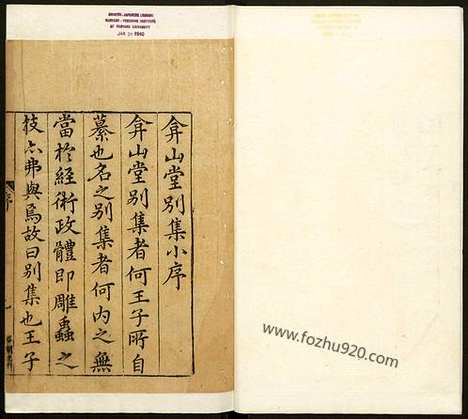 CHINESE-JAPANESE LIBRARY
HARVARD-YENCHING INSTITUTE
AT HARVARD UNIVERSITY
1940
弇山堂别集小序
弇山堂别集者何王子所自
纂也名之别集者何内之無
當於經術政體即雕蟲之
技亦弗與焉故曰别集也王子
序
www.fozhu920.com